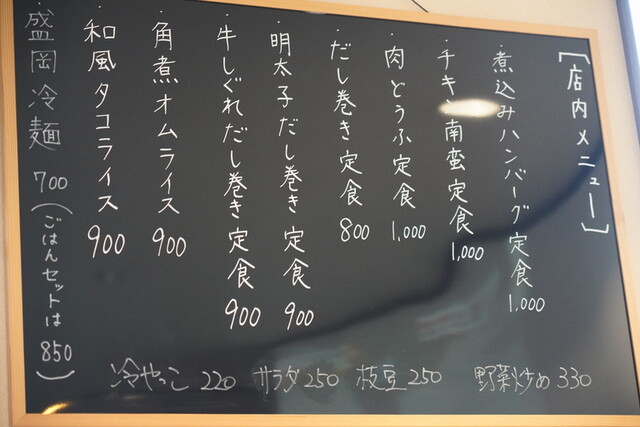 [店内メニュー]
・煮込みハンバーグ定食 1,000
・チキン南蛮定食 1,000
・肉どうふ定食 1,000
・だし巻き定食 800
・明太子だし巻き定食 900
・牛しぐれだし巻き定食 900
・角煮オムライス 900
・和風タコライス 900
・盛岡冷麺 700(ごはんセットは850)
冷やっこ 220 サラダ 250 枝豆 250 野菜炒め 330